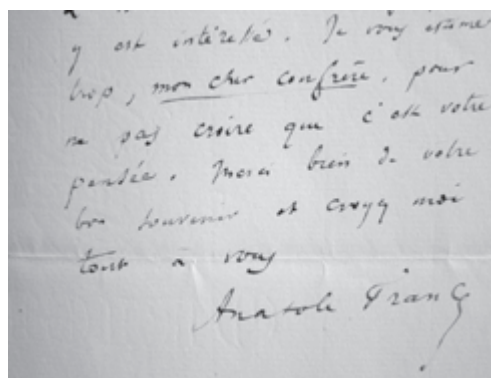 y est intéressé. Je vous estime
trop, mon cher confrère, pour
ne pas croire que c'est votre
pensée. Merci bien de votre
bon souvenir et croyez moi
tout à vous
Anatole France